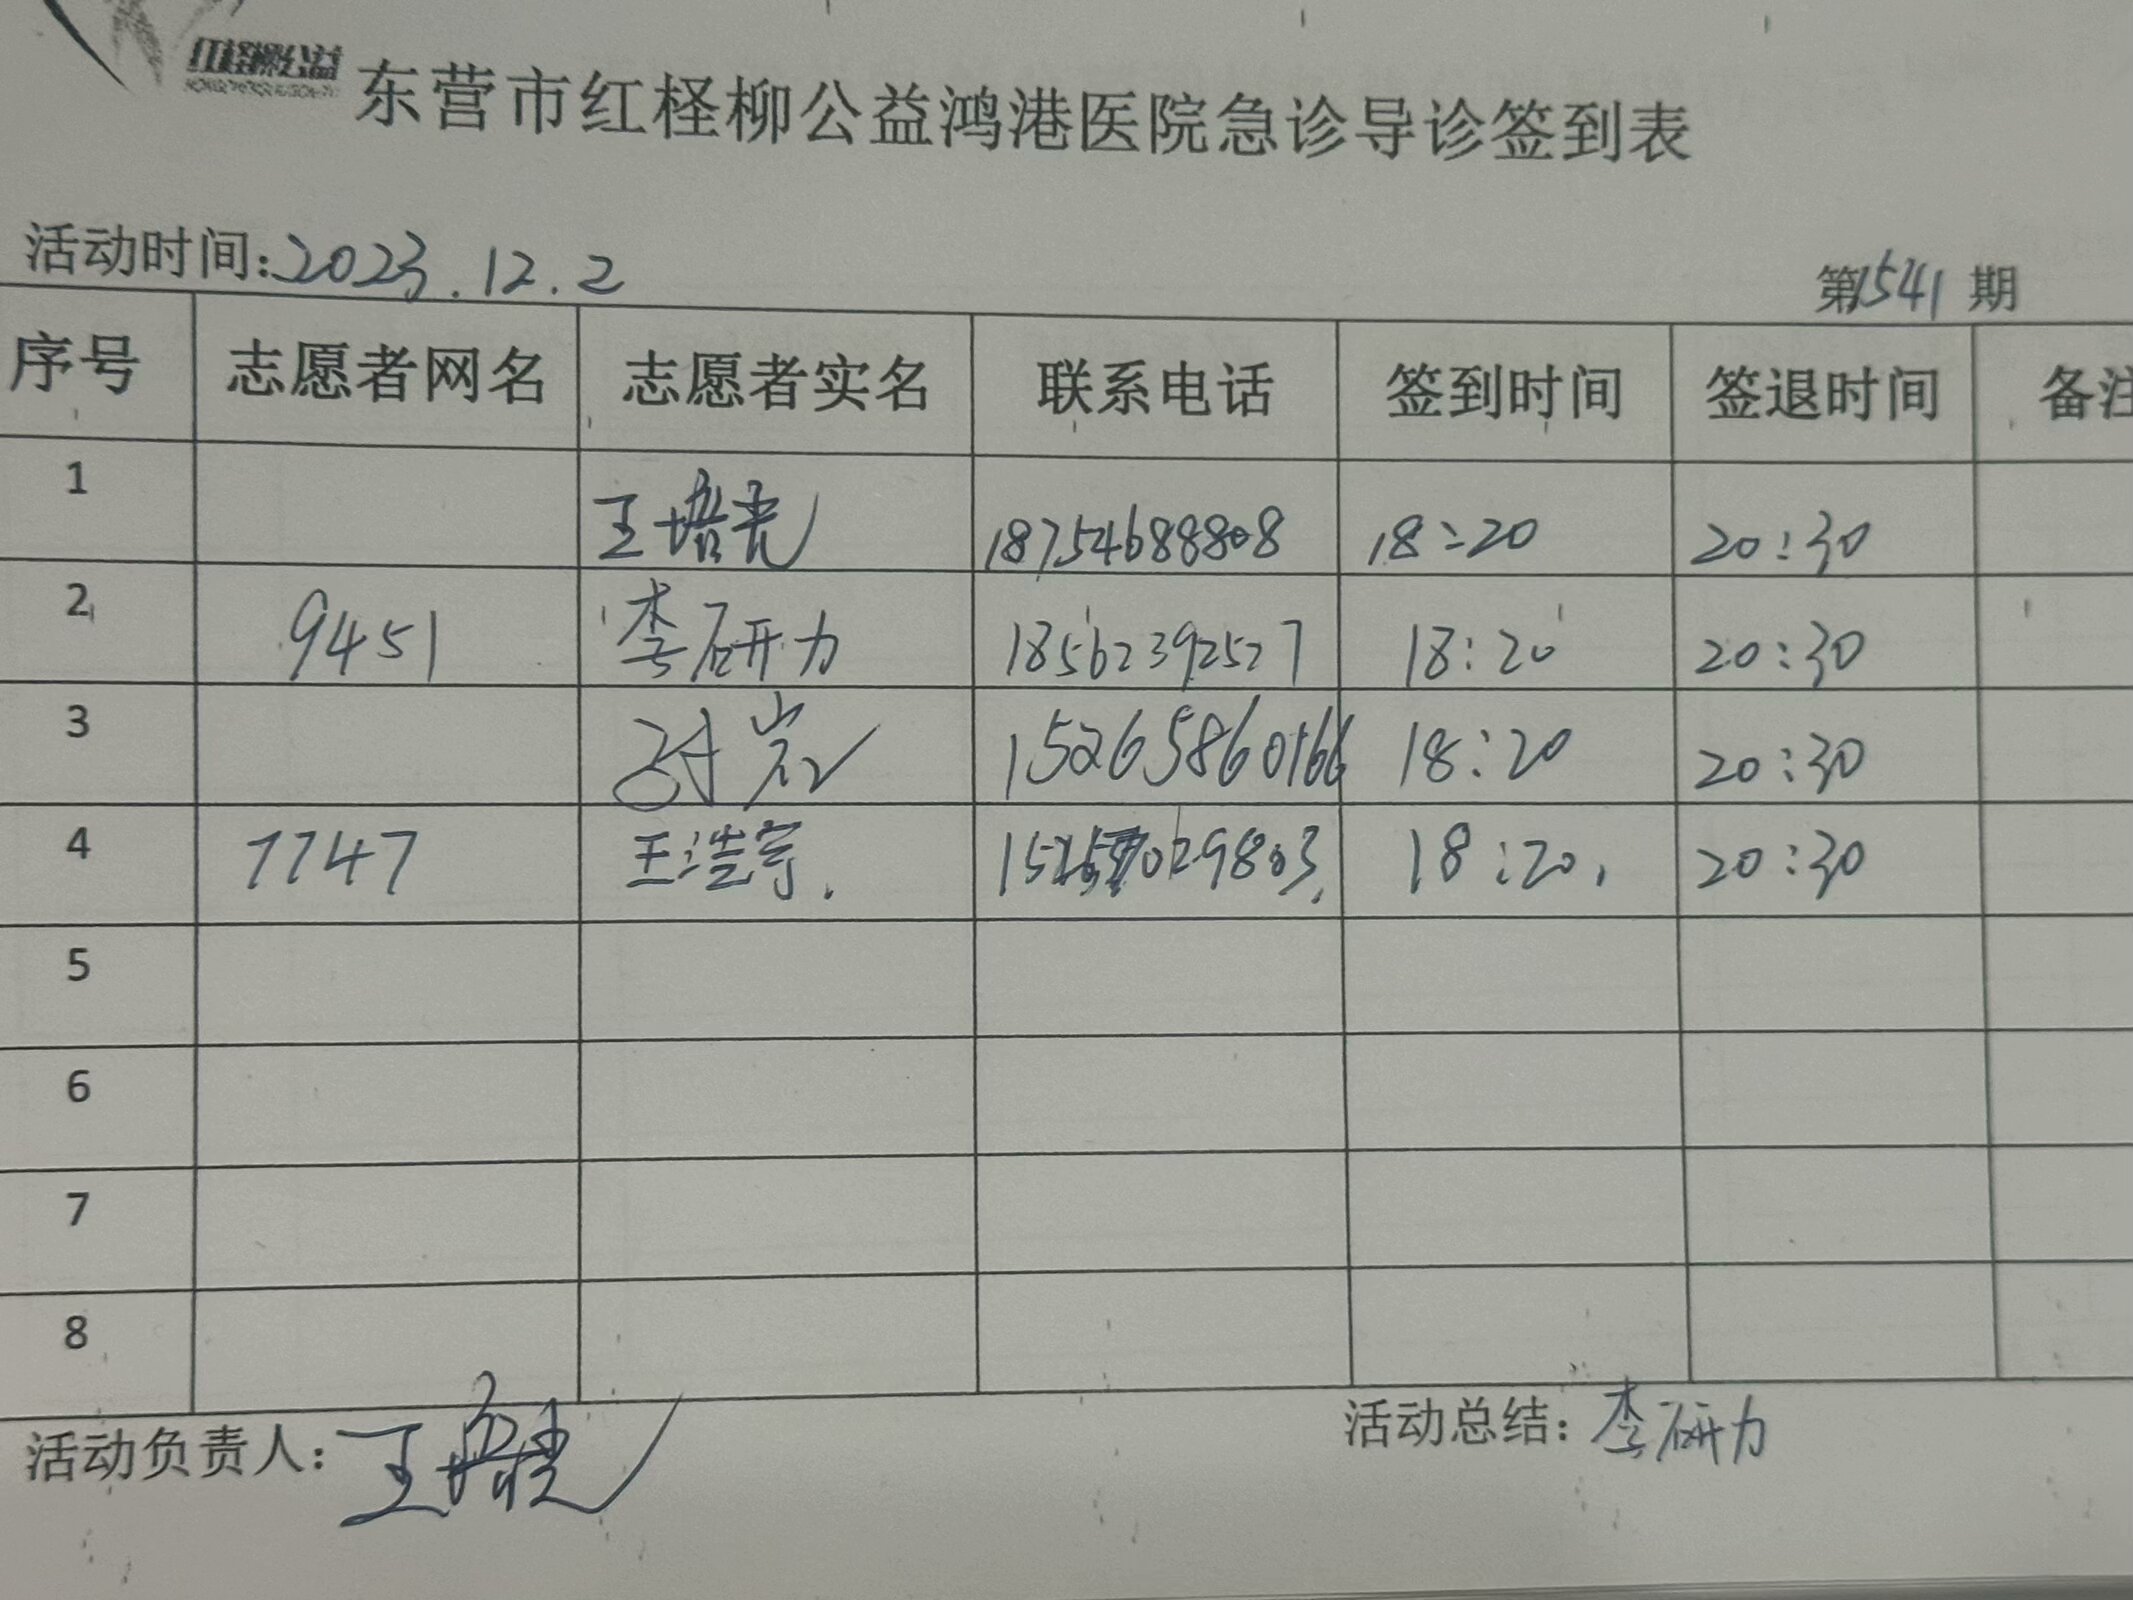 红柽柳公益
东营市红柽柳公益鸿港医院急诊导诊签到表
活动时间:2023.12.2
第1541期
序号 志愿者网名 志愿者实名 联系电话 签到时间 签退时间 备注
1 王培亮 18754688808 18:20 20:30
2 9451 李研力 18562392527 18:20 20:30
3 岩 15265860166 18:20 20:30
4 7747 王浩宇. 18:20. 20:30
5
6
7
8
活动负责人: 王培亮
活动总结: 李研力